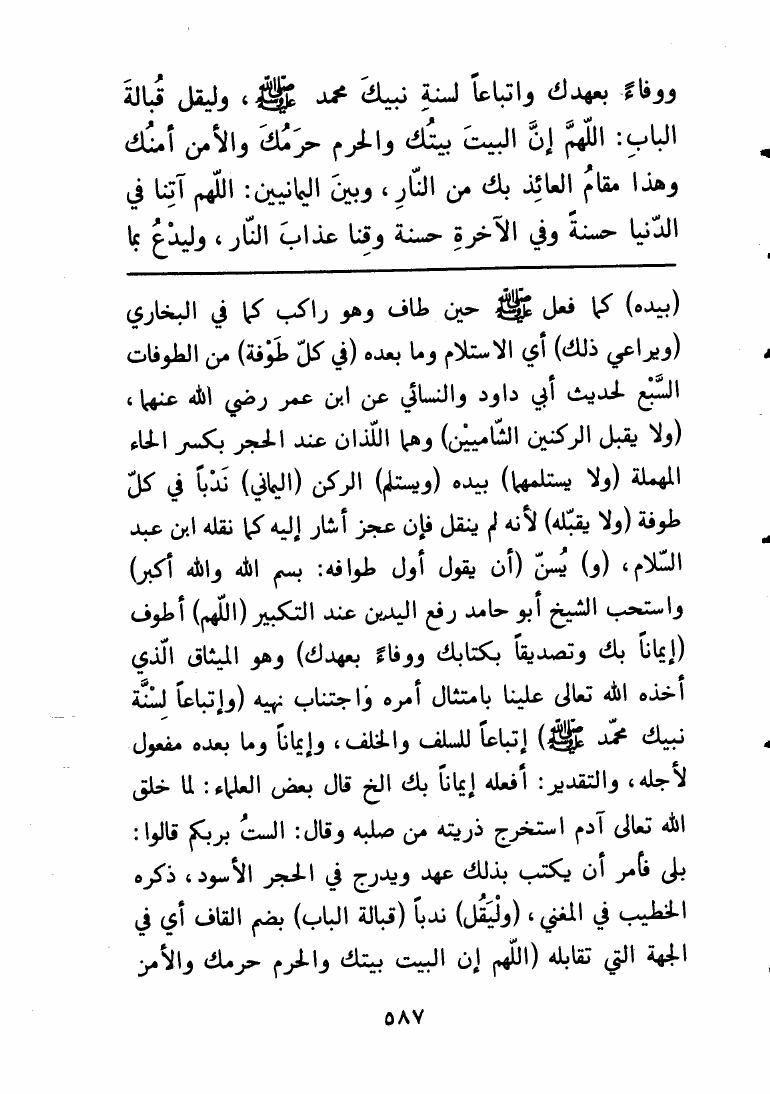 ووفاءً بعهدك واتباعاً لسنةِ نبيكَ محمد ﷺ ، وليقل قُبالةَ
البابِ : اللّهمَّ إنَّ البيتَ بيتُك والحرم حرَمُكَ والأمن أمنُك
وهذا مقامُ العائِذ بك من النّارِ ، وبينَ اليمانيين : اللّهم آتِنا في
الدّنيا حسنةً وفي الآخرةِ حسنة وقِنا عذابَ النّار ، وليدْعُ بما
(بيده) كما فعل ﷺ حين طاف وهو راكب كما في البخاري
(ويراعي ذلك) أي الاستلام وما بعده (في كلّ طَوْفة) من الطوفات
السَّبْع لحديث أبي داود والنسائي عن ابن عمر رضي الله عنهما ،
(ولا يقبل الركنين الشّامييْن) وهما اللّذان عند الحجر بكسر الحاء
المهملة (ولا يستلمهما) بيده (ويستلم) الركن (اليماني) نَدْباً في كلّ
طوفة (ولا يقبّله) لأنه لم ينقل فإن عجز أشار إليه كما نقله ابن عبد
السّلام ، (و) يُسنّ (أن يقول أول طوافه : بسم الله والله أكبر)
واستحب الشيخ أبو حامد رفع اليدين عند التكبير (اللّهم) أطوف
(إيماناً بك وتصديقاً بكتابك ووفاءً بعهدك) وهو الميثاق الّذي
أخذه الله تعالى علينا بامتثال أمره واجتناب نهيه (وإتباعاً لِسْنَّة
نبيك محمّد ﷺ) إتباعاً للسلف والخلف ، وإيماناً وما بعده مفعول
لأجله ، والتقدير : أفعله إيماناً بك الخ قال بعض العلماء : لما خلق
الله تعالى آدم استخرج ذريته من صلبه وقال : الستُ بربكم قالوا :
بلى فأمر أن يكتب بذلك عهد ويدرج في الحجر الأسود ، ذكره
الخطيب في المغني ، (ولْيَقُل) ندباً (قبالة الباب) بضم القاف أي في
الجهة التي تقابله (اللّهم إن البيت بيتك والحرم حرمك والأمن
٥٨٧